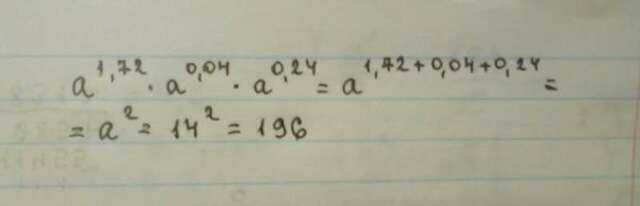 a^1,72 · a^0,04 · a^0,24 = a^1,72+0,04+0,24 =
= a^2 = 14^2 = 196